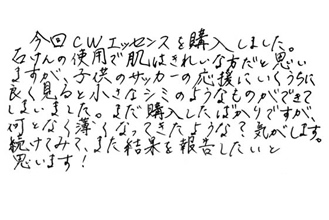 今回CWエッセンスを購入しました。
石けんの使用で肌はきれいな方だと思い
ますが、子供のサッカーの応援にいくうちに
良く見ると小さなシミのようなものができて
しまいました。まだ購入したばかりですが、
何となく薄くなってきたような？気がします。
続けてみて、また結果を報告したいと
思います！